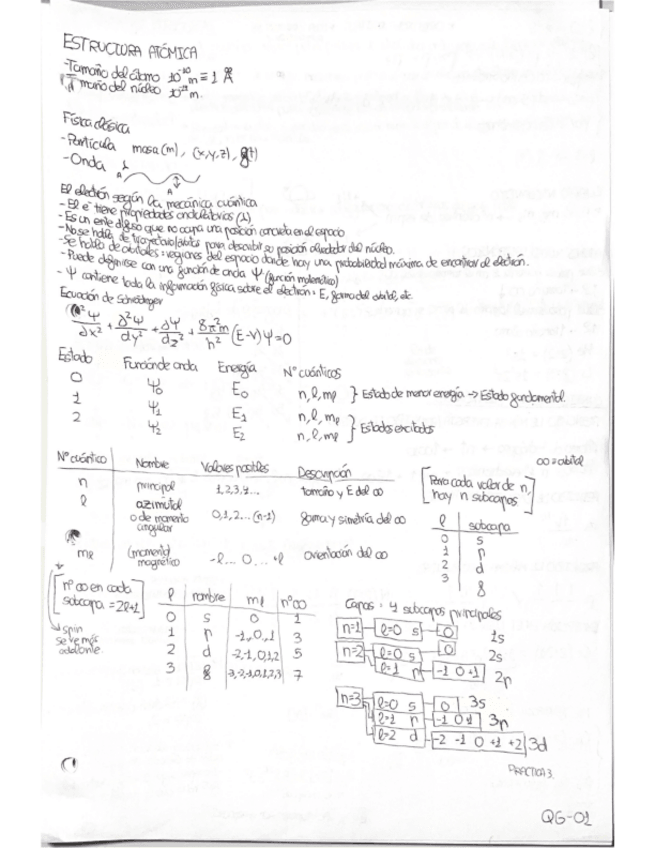 ESTRUCTURA ATÓMICA
-Tamaño del átomo 10⁻¹⁰ m ≡ 1 Å
Tamaño del núcleo m.
Física clásica
-Partícula masa (m), (x,y,z),
-Onda λ
A A
El electrón según la mecánica cuántica
- El e⁻ tiene propiedades ondulatorias (λ)
- Es un ente difuso que no ocupa una posición concreta en el espacio
- No se habla de para describir su posición alrededor del núcleo.
- Se habla de orbitales: regiones del espacio donde hay una probabilidad máxima de encontrar al electrón.
- Puede definirse con una función de onda Ψ (función matemática)
- Ψ contiene toda la información física sobre el electrón: E, forma del orbital, etc
Ecuación de Schrödinger
∂²Ψ/∂x² + ∂²Ψ/dy² + ∂Ψ/dz² + 8π²m/h² (E-V)Ψ=0
Estado Función de onda Energía Nº cuánticos
0 Ψ₀ E₀ n, l, ml } Estado de menor energía → Estado fundamental.
1 Ψ₁ E₁ n, l, ml
2 Ψ₂ E₂ n, l, ml } Estados excitados
∞=orbital
Nº cuántico Nombre Valores posibles Descripción
n principal 1,2,3,4... tamaño y E del ∞
l azimutal
o de momento
angular 0,1,2...(n-1) forma y simetría del ∞
ml (momento)
magnético -l... 0, ... +l Orientación del ∞
[Para cada valor de n,
hay n subcapas]
l subcapa
0 s
1 p
2 d
3 f
[nº ∞ en cada
subcapa = 2l+1]
spin
se ve más
adelante.
l nombre ml nº ∞
0 s 0 1
1 p -1,0,1 3
2 d -2,-1,0,1,2 5
3 f -3,-2,-1,0,1,2,3 7
Capas: 4 subcapas principales
n=1 l=0 s 0 1s
n=2 l=0 s 0 2s
l=1 p -1 0 +1 2p
n=3 l=0 s 0 3s
l=1 p -1 0 1 3p
l=2 d -2 -1 0 +1 +2 3d
PRÁCTICA 3.
QG-01